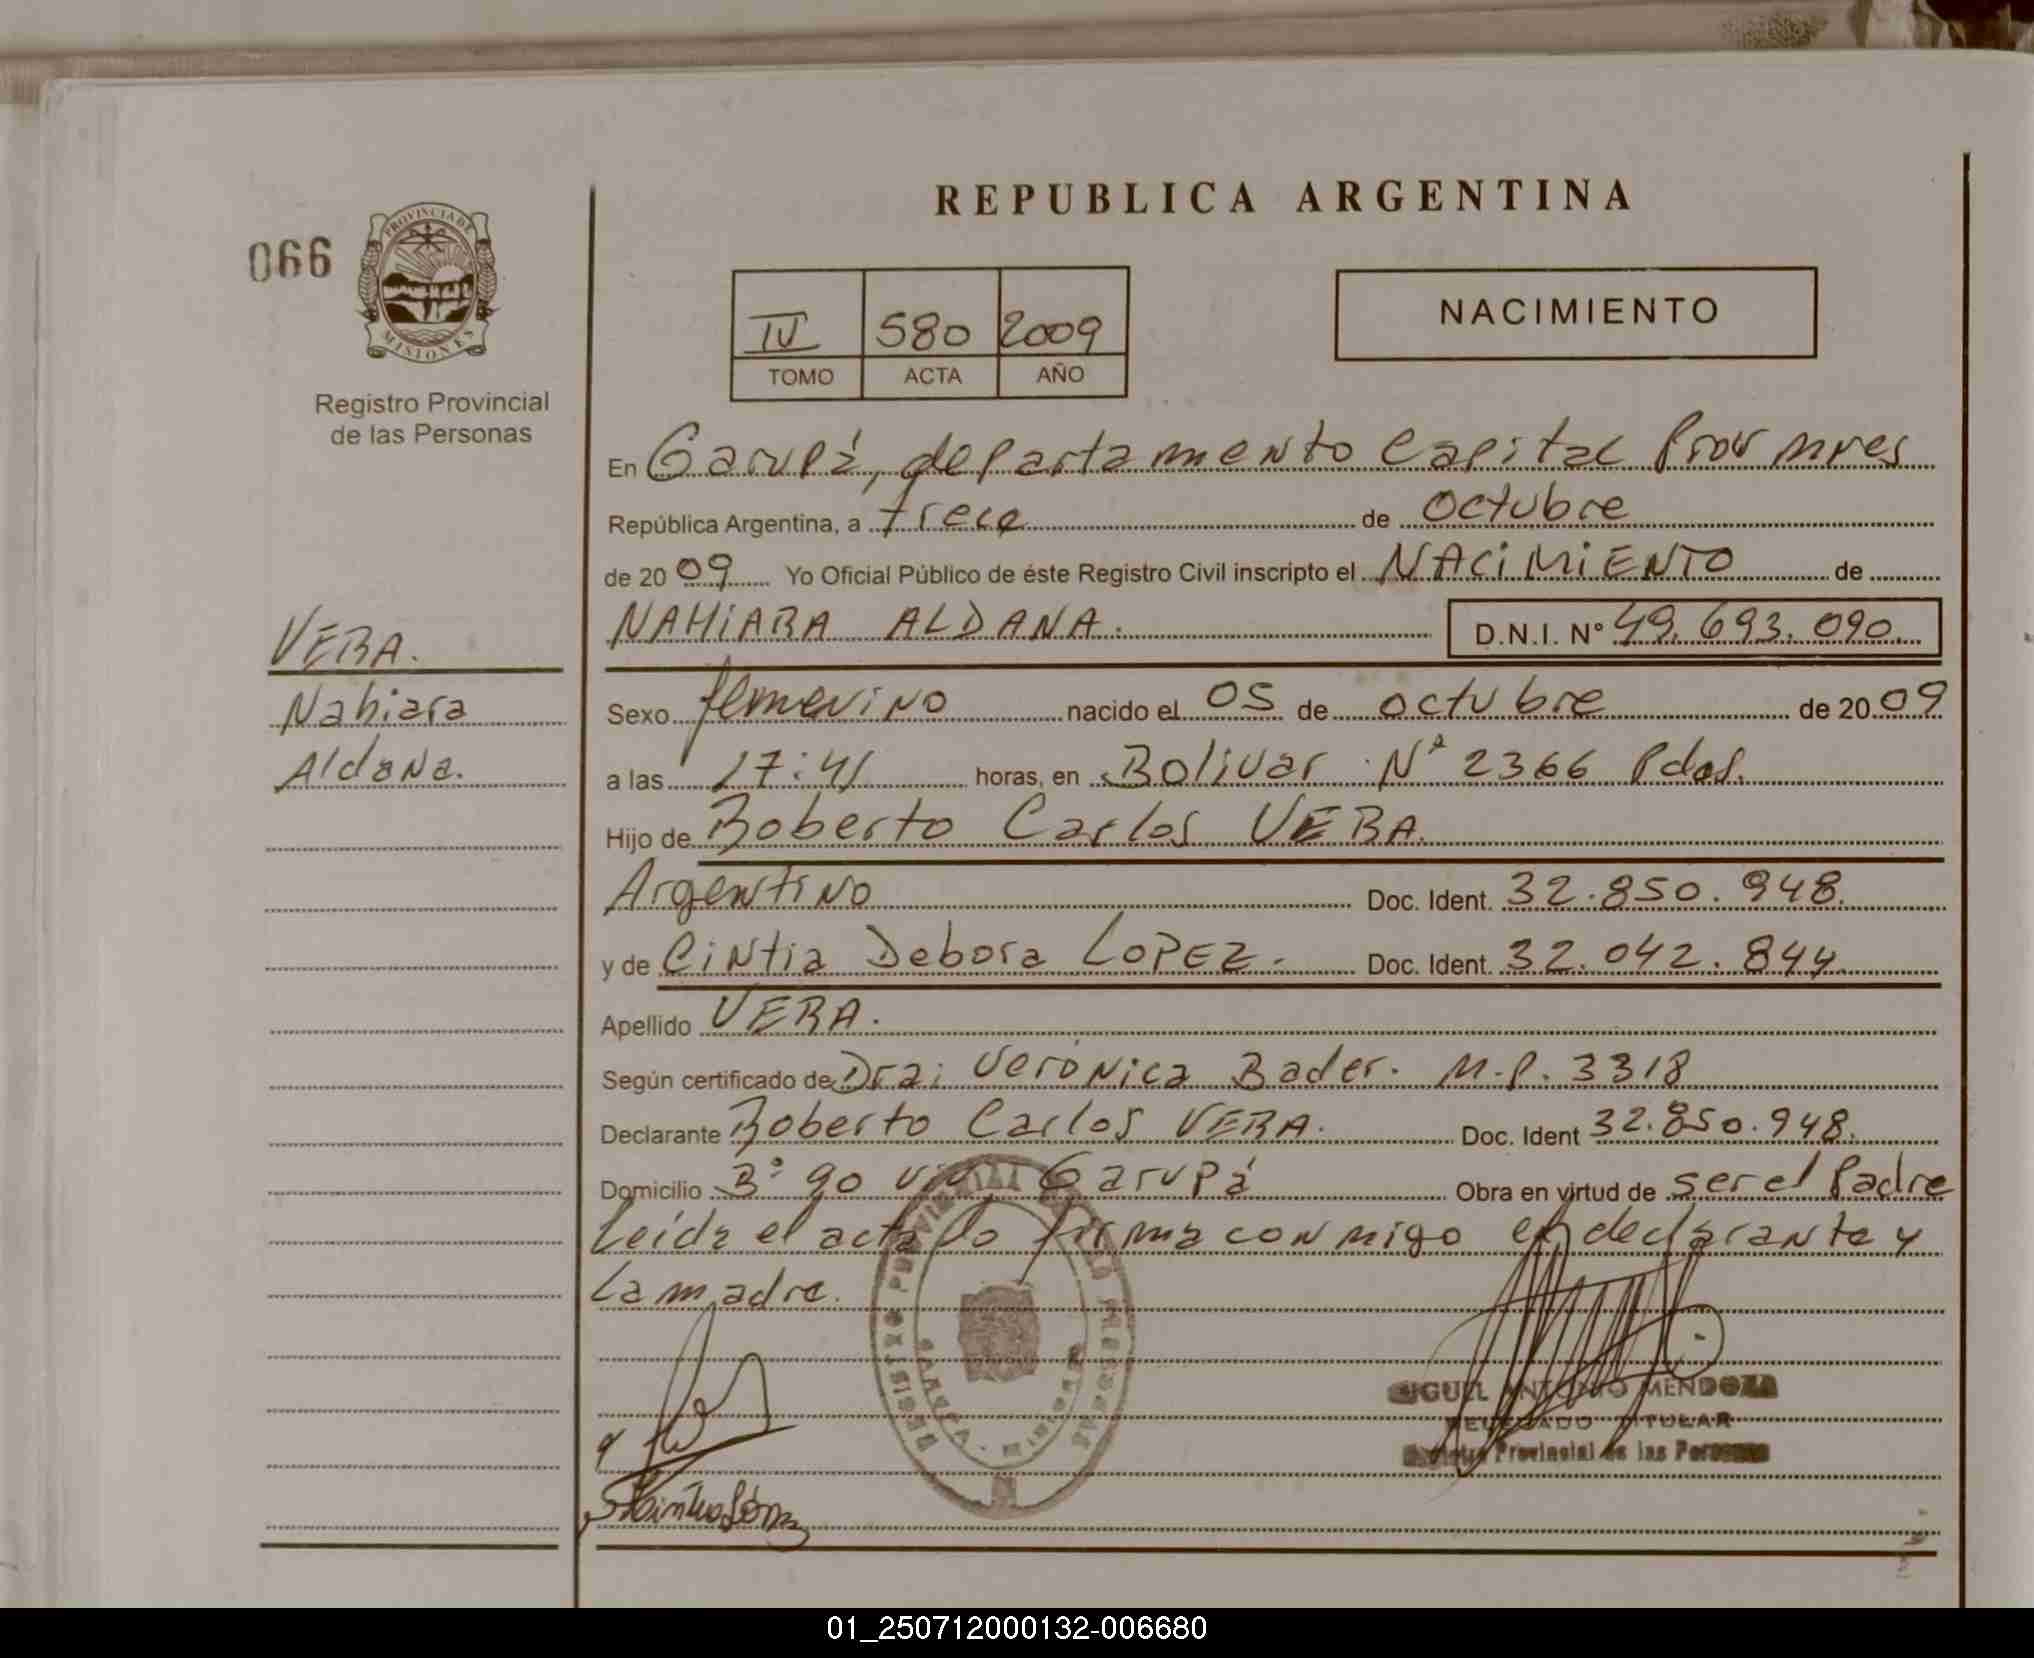 REPUBLICA ARGENTINA
066
PROVINCIA DE
MISIONES
Registro Provincial
de las Personas
IV 580 2009
TOMO ACTA AÑO
NACIMIENTO
En Garupá, departamento Capital Prov Mnes
República Argentina, a trece de octubre
de 2009 Yo Oficial Público de éste Registro Civil inscripto el NACIMIENTO de
VERA.
NAHIARA ALDANA. D.N.I. Nº 49.693.090
Nahiara
Aldana.
Sexo femenino nacido el 05 de octubre de 2009
a las 17:41 horas, en Bolivar Nº 2366 Pdas.
Hijo de Roberto Carlos VERA.
Argentino Doc. Ident. 32.850.948.
y de Cintia Debora LOPEZ. Doc. Ident. 32.042.844
Apellido VERA.
Según certificado de Dra: Verónica Bader. M.P. 3318
Declarante Roberto Carlos VERA. Doc. Ident 32.850.948.
Domicilio Bº 90 viv Garupá Obra en virtud de ser el Padre
Leída el acta lo firma conmigo el declarante y
la madre.
REGISTRO PROVINCIAL DE LAS PERSONAS
GARUPA - MISIONES
MIGUEL ANTONIO MENDOZA
DELEGADO TITULAR
Registro Provincial de las Personas
01_250712000132-006680